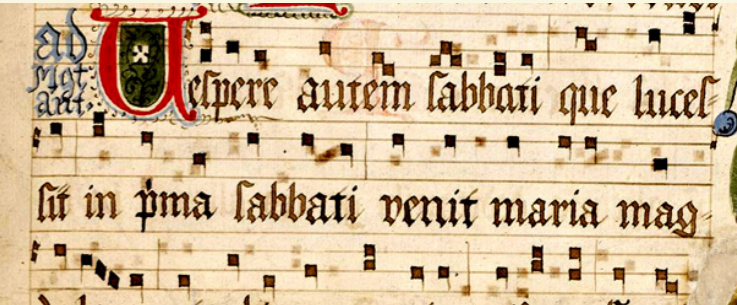 ad
mgt
ant.
Vespere autem sabbati que luces-
sit in pma sabbati venit maria mag-